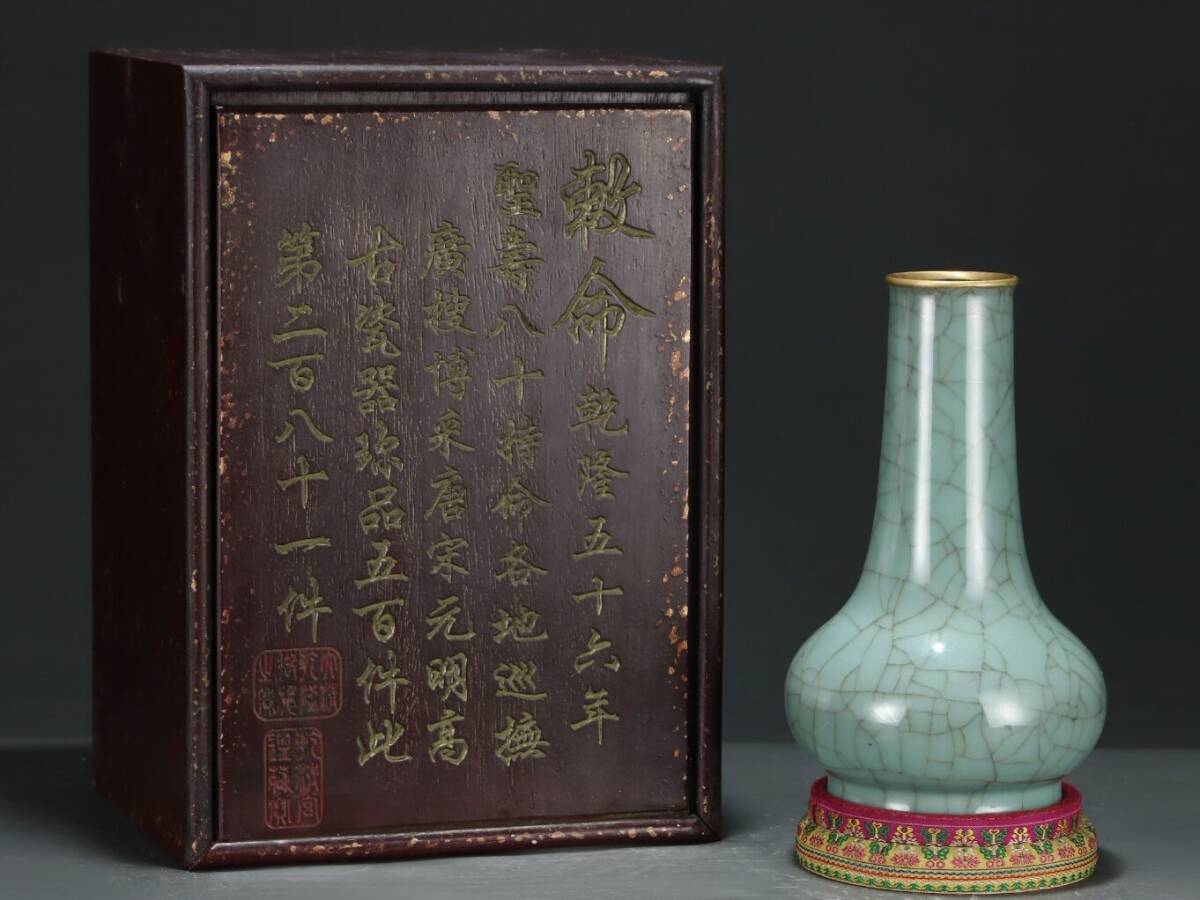 敕命乾隆五十六年
聖壽八十特命各地巡撫
廣搜博采唐宋元明高
古瓷器珍品五百件此
第二百八十一件